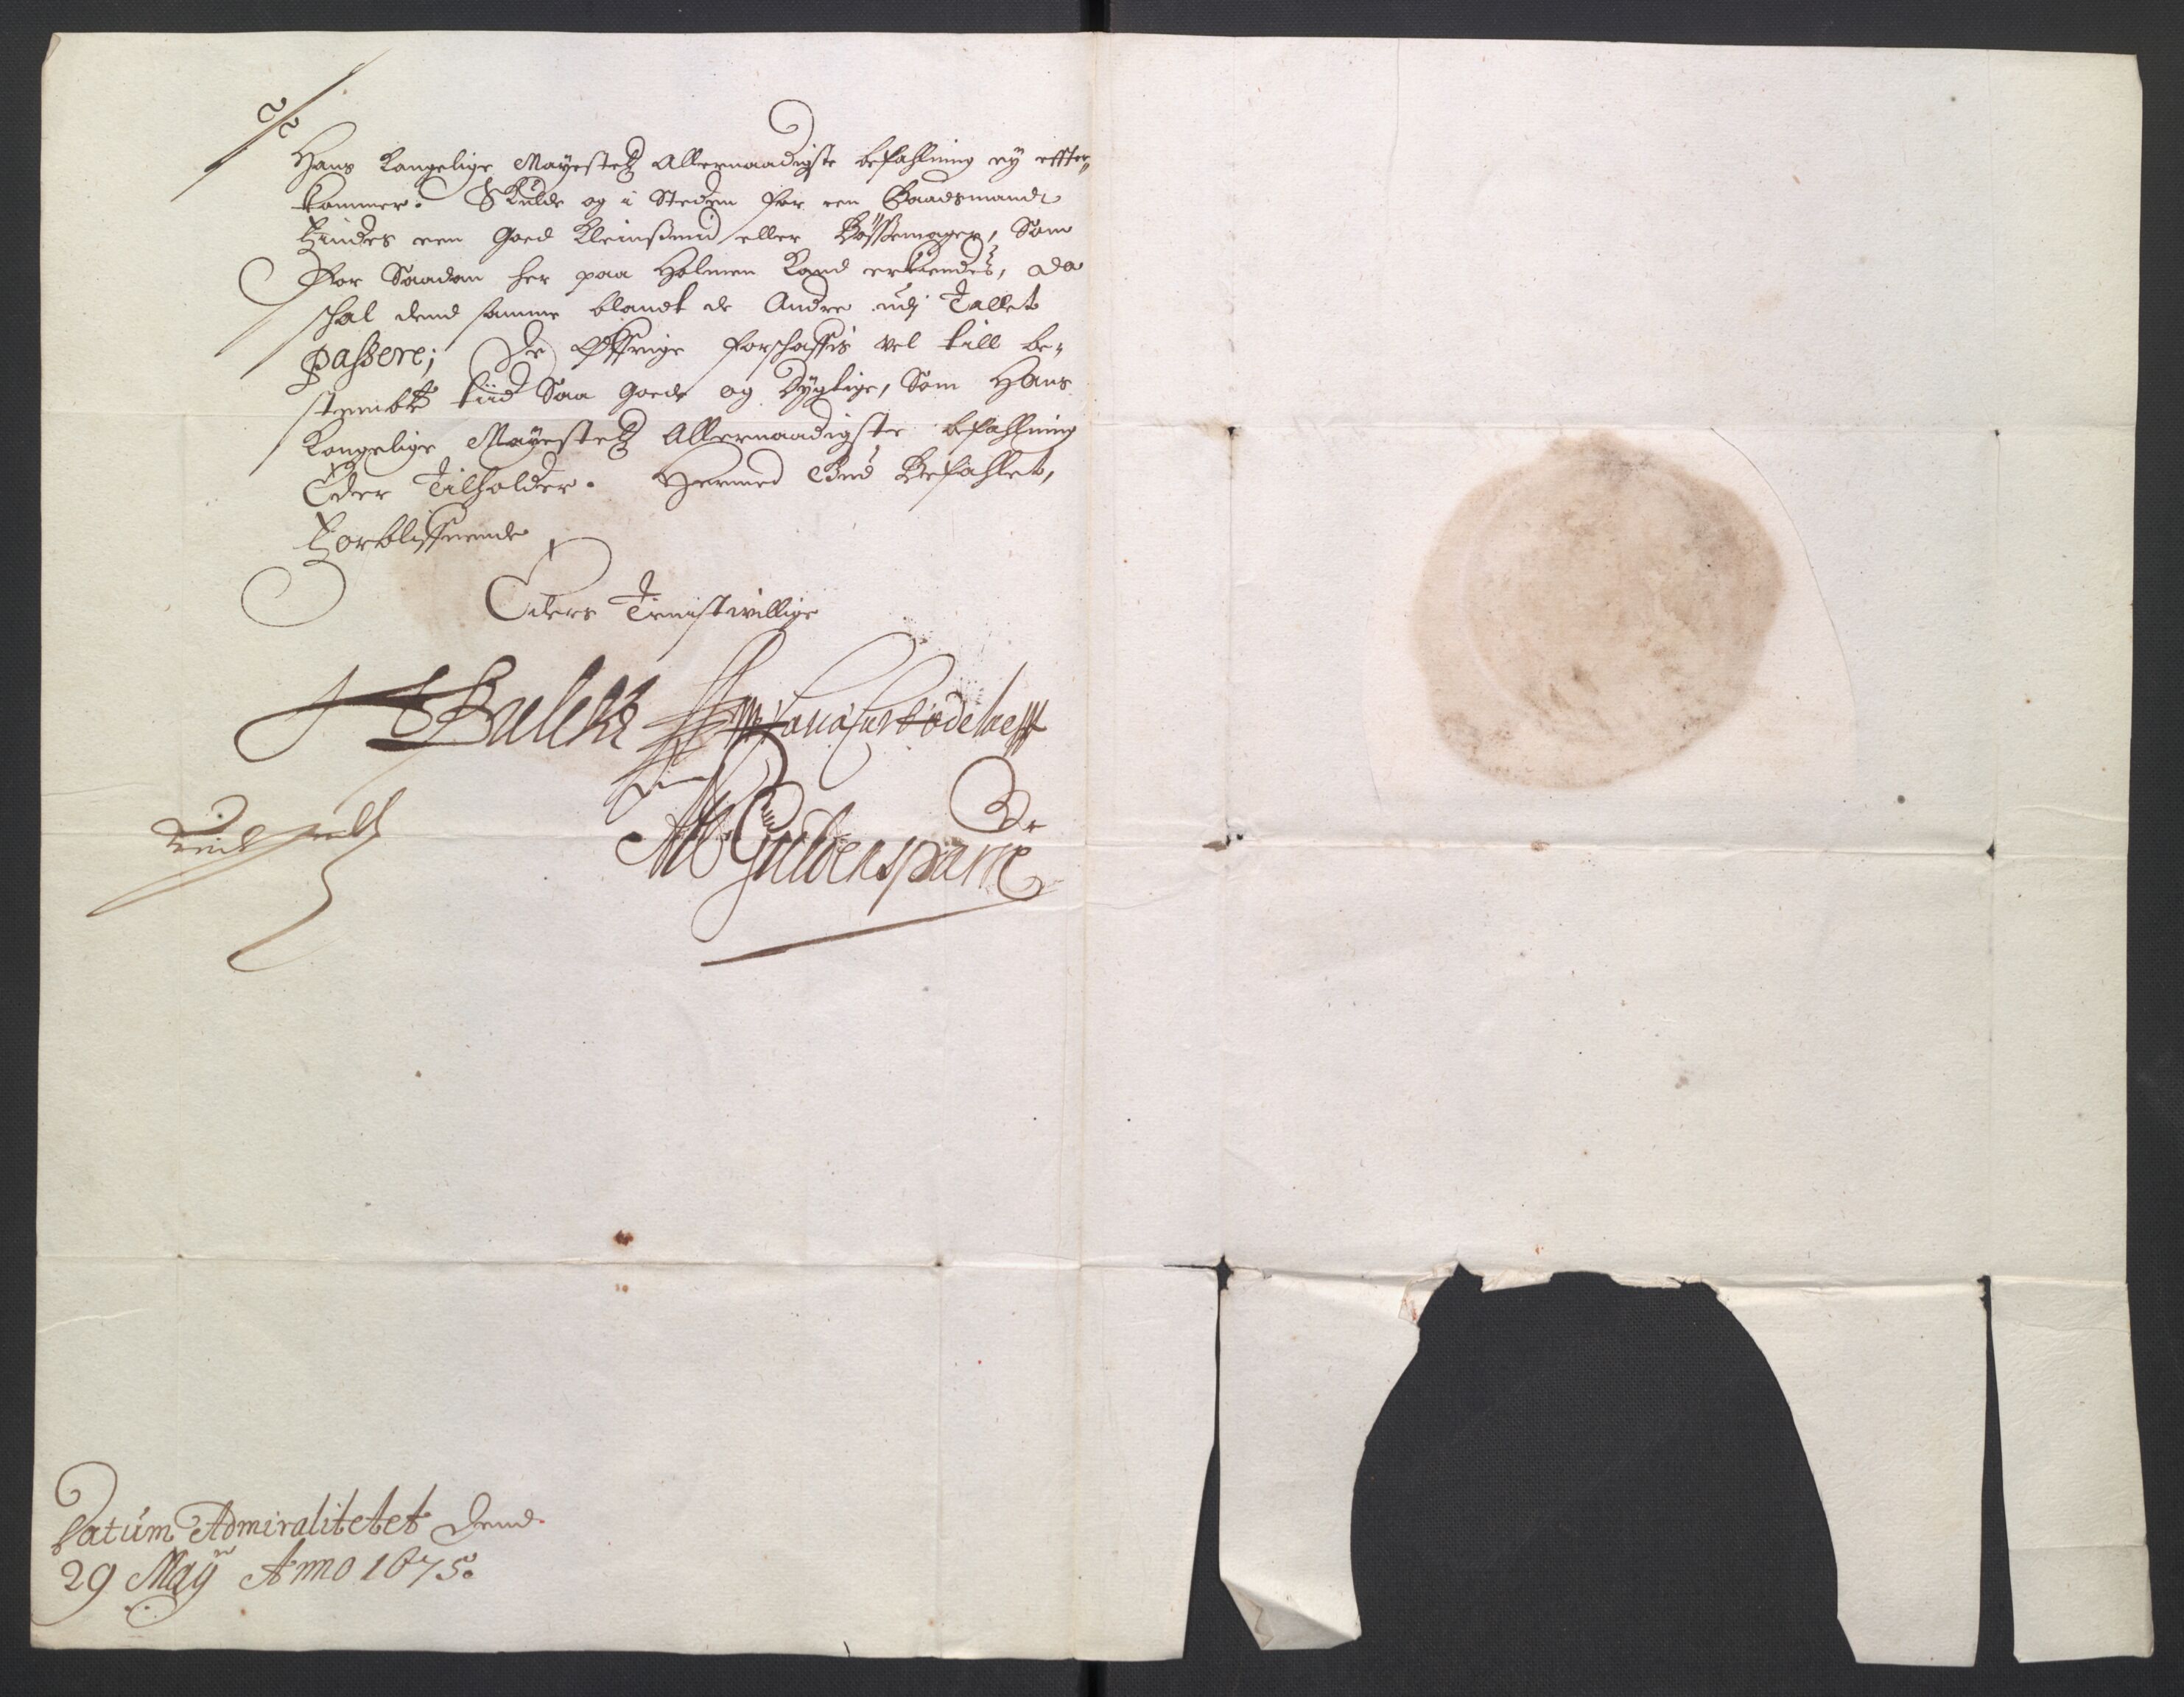 Hans Kongelige Mayestetz Allernaadigste befahlning ey effter-
kommer. Skulde og i Steden for een Baadsmand
findes een goed Kleinsmid eller Bösßemager, Som
for Saadan her paa Holmen kand erkiendes, da
schal dend samme blandt de Andre udj Tallet
passere; De Øffrige forschaffis vel till be-
stembte tiid Saa goede og dygtige, Som Hans
Kongelige Mayestetz Allernaadigste befahlning
Eder Tilholder. Hermed Gud Befahlet,
Forbliffuende
Eders Tienistwillige
Bielcke
Rodsteen
Guldensparre
Datum Admiralitetet Dend
29 Maÿ Anno 1675.